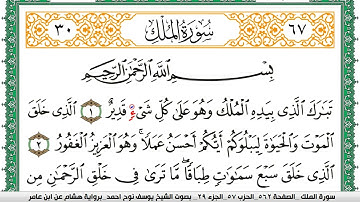 ٣٠ سُورَةُ الْمُلْكِ ٦٧
بِسْمِ اللَّهِ الرَّحْمَٰنِ الرَّحِيمِ
تَبَارَكَ الَّذِي بِيَدِهِ الْمُلْكُ وَهُوَ عَلَىٰ كُلِّ شَيْءٍ قَدِيرٌ ١ الَّذِي خَلَقَ
الْمَوْتَ وَالْحَيَوٰةَ لِيَبْلُوَكُمْ أَيُّكُمْ أَحْسَنُ عَمَلًا وَهُوَ الْعَزِيزُ الْغَفُورُ ٢
الَّذِي خَلَقَ سَبْعَ سَمَٰوَٰتٍ طِبَاقًا مَّا تَرَىٰ فِي خَلْقِ الرَّحْمَٰنِ مِن
سورة الملك _ الصفحة ٥٦٢ الحزب ٥٧ الجزء ٢٩ _ بصوت الشيخ يوسف نوح احمد _ برواية هشام عن ابن عامر